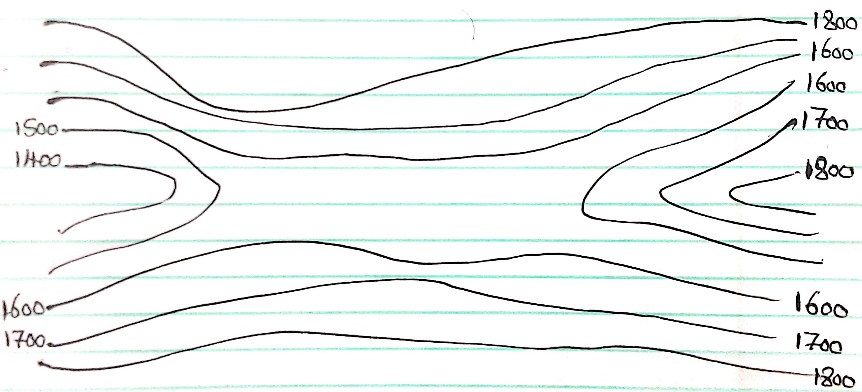 1800
1600
1600
1500
1700
1400
1800
1600
1600
1700
1700
1800